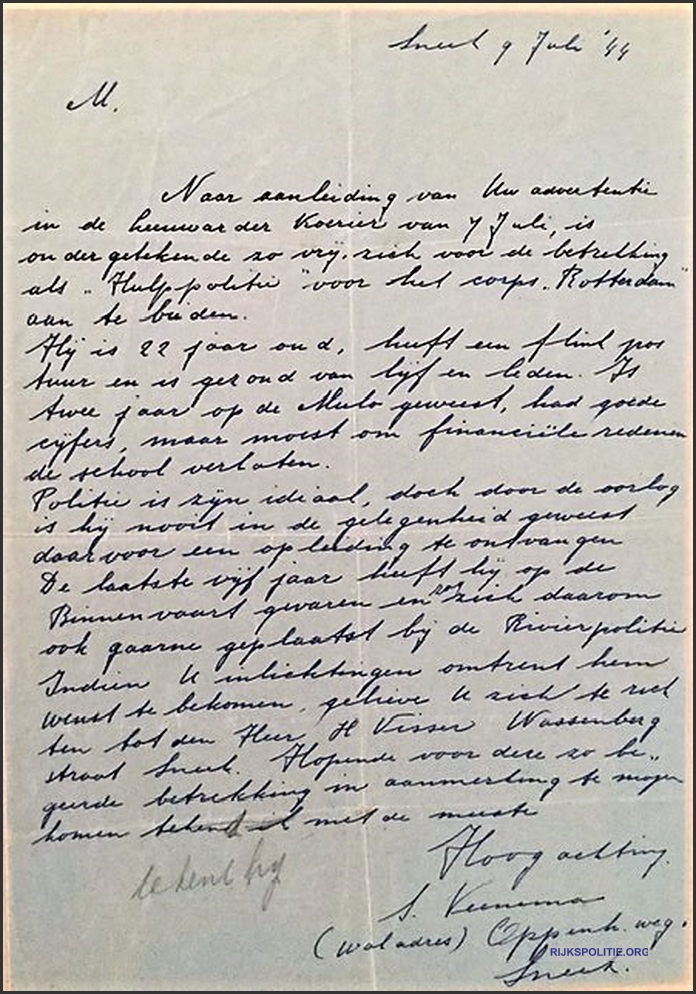 Sneek 9 Juli '44
M.
Naar aanleiding van Uw advertentie
in de Leeuwarder Koerier van 7 Juli, is
ondergetekende zo vrij, zich voor de betrekking
als „Hulppolitie" voor het corps „Rotterdam"
aan te bieden.
Hij is 22 jaar oud, heeft een flink pos
tuur en is gezond van lijf en leden. Is
twee jaar op de Mulo geweest, had goede
cijfers, maar moest om financiële redenen
de school verlaten.
Politie is zijn ideaal, doch door de oorlog
is hij nooit in de gelegenheid geweest
daarvoor een opleiding te ontvangen
De laatste vijf jaar heeft hij op de
Binnenvaart gevaren en zag zich daarom
ook gaarne geplaatst bij de Rivierpolitie
Indien U inlichtingen omtrent hem
wenst te bekomen, gelieve U zich te rich
ten tot den Heer H Visser Wassenberg
straat Sneek. Hopende voor deze zo be„
geerde betrekking in aanmerking te mogen
komen tekent ik met de meeste
tekent hij
Hoogachting.
S. Veenema
(waladres) Oppenh. weg.
Sneek.
RIJKSPOLITIE.ORG